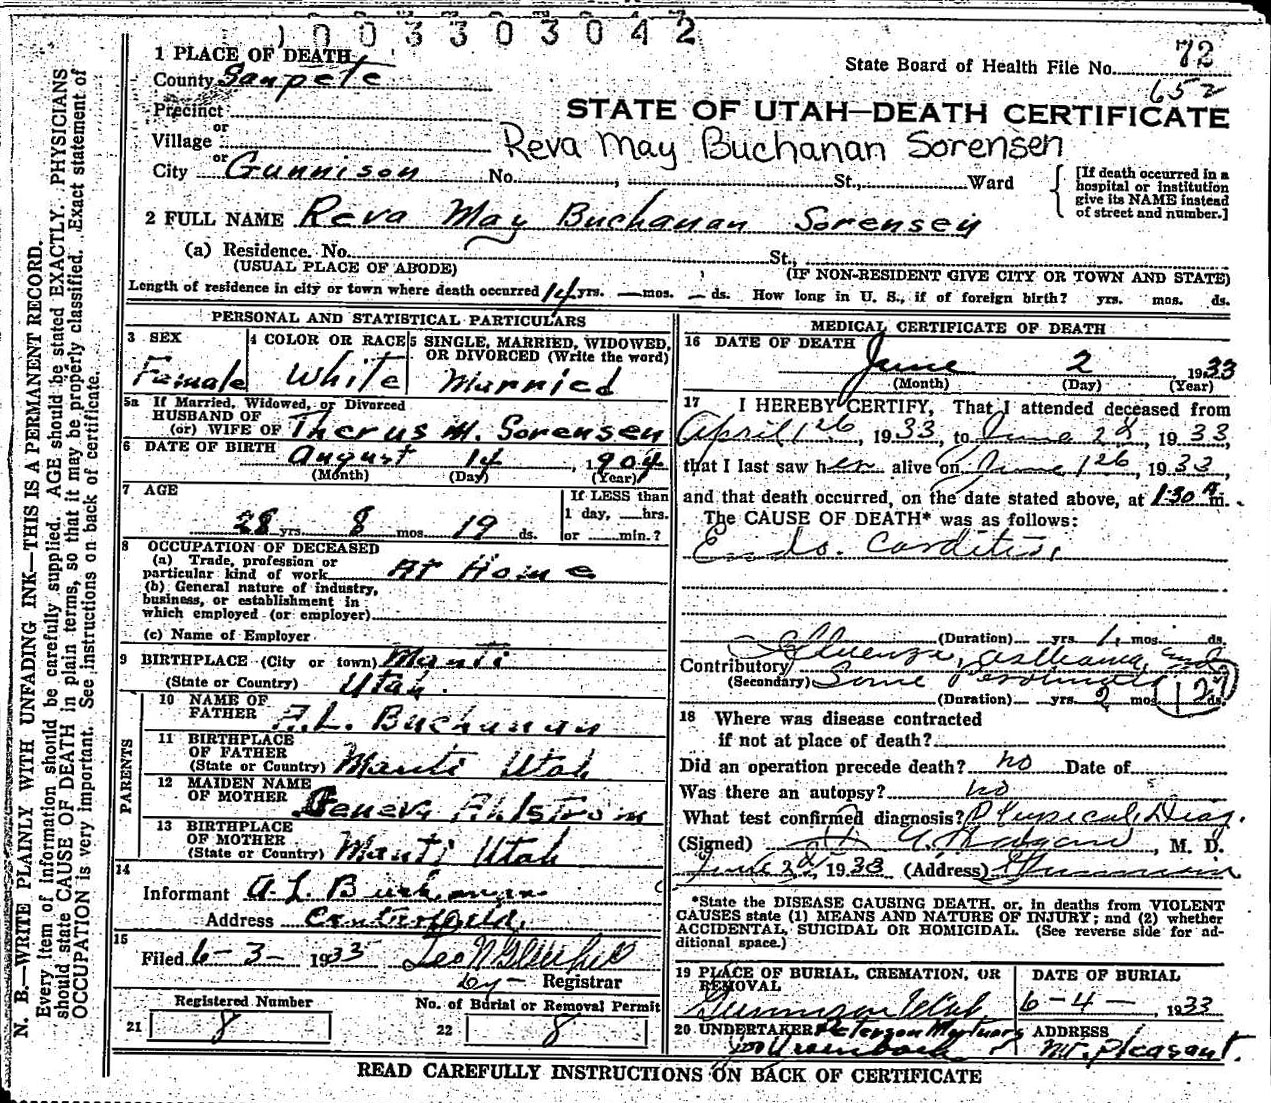 1003303042
1 PLACE OF DEATH
County Sanpete
State Board of Health File No. 72
652
Precinct
or
Village
or
City Gunnison No. , St., Ward
STATE OF UTAH—DEATH CERTIFICATE
Reva May Buchanan Sorensen
[If death occurred in a
hospital or institution
give its NAME instead
of street and number.]
2 FULL NAME Reva May Buchanan Sorensen
(a) Residence. No. St.,
(USUAL PLACE OF ABODE) (IF NON-RESIDENT GIVE CITY OR TOWN AND STATE)
Length of residence in city or town where death occurred 14 yrs. — mos. — ds. How long in U. S., if of foreign birth? yrs. mos. ds.
PERSONAL AND STATISTICAL PARTICULARS
3 SEX 4 COLOR OR RACE 5 SINGLE, MARRIED, WIDOWED,
OR DIVORCED (Write the word)
Female White Married
5a If Married, Widowed, or Divorced
HUSBAND OF
(or) WIFE OF Therus M. Sorensen
6 DATE OF BIRTH August 14, 1904
(Month) (Day) (Year)
7 AGE If LESS than
1 day, hrs.
28 yrs. 8 mos. 19 ds. or min.?
8 OCCUPATION OF DECEASED
(a) Trade, profession or
particular kind of work At Home
(b) General nature of industry,
business, or establishment in
which employed (or employer)
(c) Name of Employer
9 BIRTHPLACE (City or town) Manti
(State or Country) Utah.
PARENTS
10 NAME OF
FATHER A.L. Buchanan
11 BIRTHPLACE
OF FATHER
(State or Country) Manti Utah
12 MAIDEN NAME
OF MOTHER Geneva Ahlstrom
13 BIRTHPLACE
OF MOTHER
(State or Country) Manti Utah
14
Informant A. L. Buchanan
Address Centerfield,
15
Filed 6-3- 1933
by- Registrar
Registered Number No. of Burial or Removal Permit
21 8 22 8
MEDICAL CERTIFICATE OF DEATH
16 DATE OF DEATH
June 2 1933
(Month) (Day) (Year)
17 I HEREBY CERTIFY, That I attended deceased from
April , 1933, to June , 1933,
that I last saw her alive on June , 1933,
and that death occurred, on the date stated above, at 1:30 A m.
The CAUSE OF DEATH* was as follows:
Endo. Carditis,
(Duration) yrs. 1 mos. ds.
Contributory
(Secondary)
(Duration) yrs. 2 mos. ds.
127
18 Where was disease contracted
if not at place of death?
Did an operation precede death? no Date of
Was there an autopsy? no
What test confirmed diagnosis? Physical Diag.
(Signed) , M. D.
June 2d, 1933 (Address) Gunnison
*State the DISEASE CAUSING DEATH, or, in deaths from VIOLENT
CAUSES state (1) MEANS AND NATURE OF INJURY; and (2) whether
ACCIDENTAL, SUICIDAL OR HOMICIDAL. (See reverse side for ad-
ditional space.)
19 PLACE OF BURIAL, CREMATION, OR
REMOVAL DATE OF BURIAL
Gunnison Utah 6-4-, 1933
20 UNDERTAKER Peterson ADDRESS
Mt. Pleasant.
READ CAREFULLY INSTRUCTIONS ON BACK OF CERTIFICATE
N. B.—WRITE PLAINLY WITH UNFADING INK—THIS IS A PERMANENT RECORD.
Every item of information should be carefully supplied. AGE should be stated EXACTLY. PHYSICIANS
should state CAUSE OF DEATH in plain terms, so that it may be properly classified. Exact statement of
OCCUPATION is very important. See instructions on back of certificate.